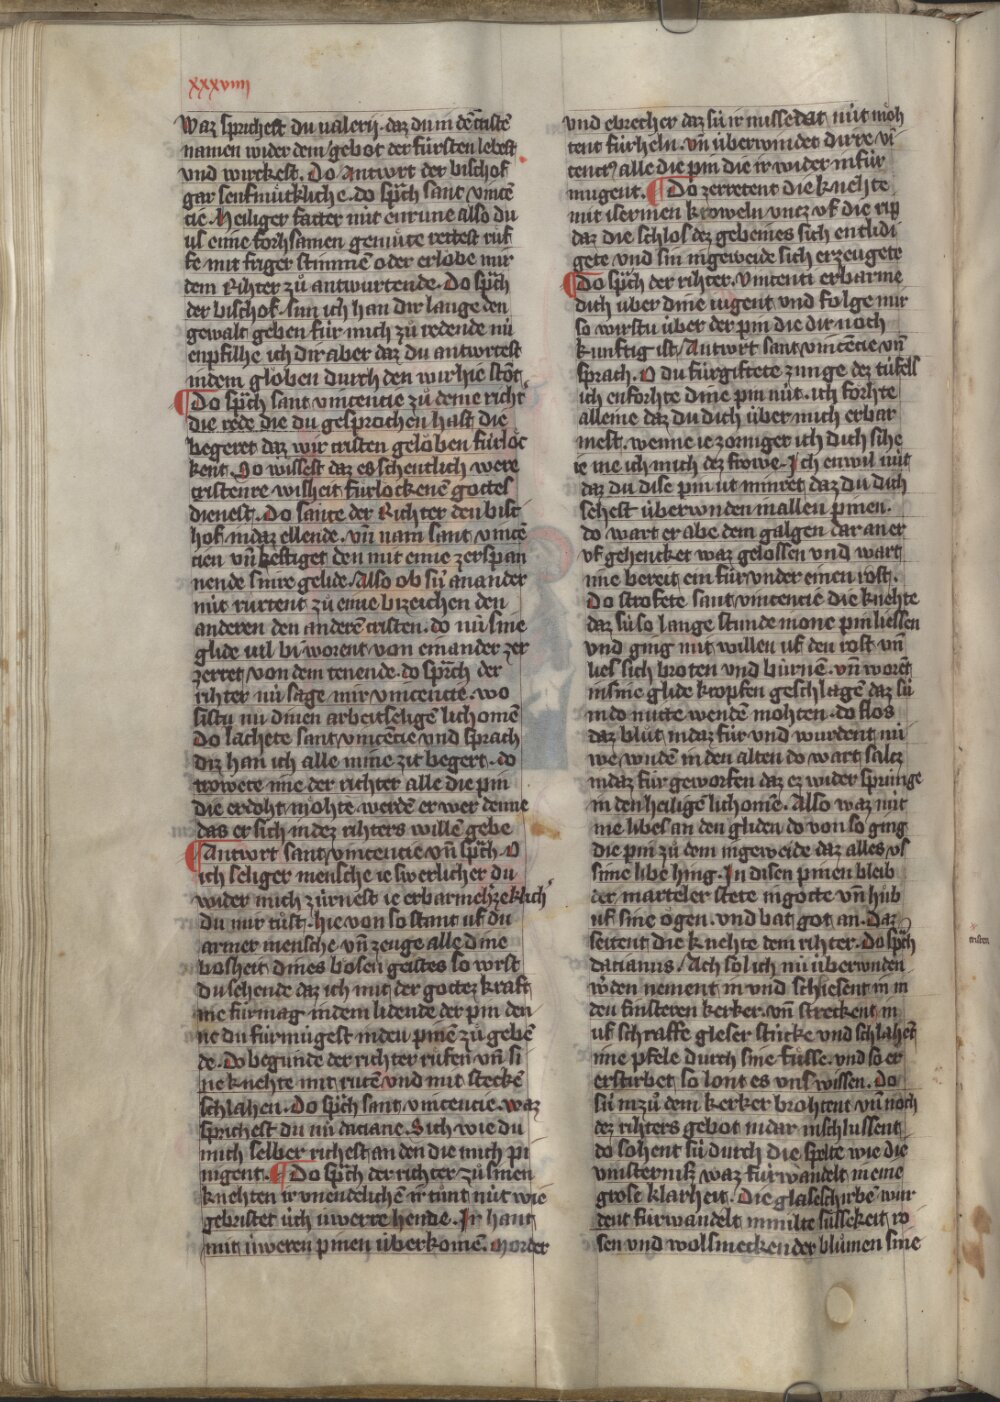 xxxviiii
Waz sprichest du valerij. daz du in dē cristē
namen wider dem gebot der fúrsten lebest
vnd wúrckest. Do Antwrt der bischof
gar senfmuͤtkliche. do spͣch sant vincē
cie. Heiliger fatter nút enrune also du
us eime forhsamen gemuͤte rettest ruͤf
fe mit friger stimmē oder erlobe mir
dem Rihter zuͦ antwurtende. Do spͣch
der bischof. sun ich han dir lange den
gewalt geben fúr mich zuͦ redende nú
enpfilhe ich dir aber daz du antwrtest
in dem gloͮben durch den wir hie stōt
Do spͣch sant vincencie zuͦ deme richt̕
die rede die du gesprochen hast die
begeret daz wir cristen geloͮben fúrloͤc
kent. So wissest daz es schentlich were
cristenre wisheit fúrlockenē gottes
dienest. Do sante der Richter den bisc
hof in daz ellende. vn̄ nam sant vincē
cien vn̄ kestiget den mit eime zerspan
nende sinre gelide. Also ob sú anander
nút rúrtent zuͦ eime bizeichen den
anderen den anderē cristen. do nú sine
glide vil bi worent von einander zer
zerret von dem tenende. do spͣrch der
rihter nú sage mir vincencie. wo
sistu nu dinen arbeitseligē lichomē
Do lachete sant vincēcie vnd sprach
diz han ich alle mine zit begert. do
trowete ime der richter alle die pin
die erdoht mohte werdē er wer denne
das er sich in dez rihters willē gebe
Antwrt sant vincencie vn̄ spͣch. O
ich seliger mensche ie swerlicher du
wider mich zúrnest ie erbarmeh̕zeklich̕
du mir tuͦst. hie von so stant uf du
armer mensche vn̄ zeuge alle dine
bosheit dines bosen geistes so wirst
du sehende daz ich mit der gottez kraft
me fúrmag in dem lidende der pin den
ne du fúrmúgest in den pinē zuͦ gebē
de. Do begunde der richter ruͤfen vn̄ si
ne knehte mit rutē vnd mit steckē
schlahen. Do spͣch sant vincencie. waz
sprichest du nú daciane. Sich wie du
mich selber richest an den die mich pi
nigent. Do spͣch der richter zuͦ sinen
knehten ir vnendelichē ir tuͦnt nút wie
gebristet úch úwerre hende. Ir hant
mit úweren pinen úberkomē. morder
vnd ebrecher daz sú ir missedat nút moͤh
tent fúrheln. vn̄ úberwindet dirre vī
tencꝰ alle die pin die ir wider in fúr
mugent. Do zerretent die knehte
mit iserninen kroweln vntz vf die rip
daz die schlos dez gebeines sich entlidi
gete vnd sin ingeweide sich erzeugete
Do spͣch der rihter. Vincenti erbarme
dich úber dine iugent vnd folge mir
so wirstu úber der pin die dir noch
kunftig ist. Antwrt sant vincētie vn̄
sprach. O du fúrgiftete zunge dez túfels
ich enforhte dine pin nút. ich forhte
alleine daz du dich úber mich erbar
mest. wenne ie zorniger ich dich sihe
ie me ich mich dez froͮwe. Ich enwil nút
daz du dise pin út minrest daz du dich
sehest úberwnden in allen pinen.
do wart er abe dem galgen dar an er
vf gehencket waz gelossen vnd wart
ime bereit ein fúr vnder einen rost.
Do strofete sant vincencie die knehte
daz sú so lange stunde in one pin liessen
vnd ging mit willen uf den rost vn̄
lies sich broten vnd búrnē. vn̄ worēt
in sine glide kropfen geschlagē daz sú
in do mitte wendē mohten. do flos
daz bluͦt in daz fúr vnd wurdent nú
we wndē in den alten do wart saltz
in daz fúr geworfen daz ez wider sprunge
in den heiligē lichomē. Also waz nút
me libes an den gliden do von so ging
die pin zuͦ dem ingeweide daz alles vs
sime libe hing. In disen pinen bleib
der marteler stete in gotte vn̄ huͦb
uf sine oͮgen. vnd bat got an. Daz
seitent die knehte dem rihter. Do spͣch
dacianus. Ach sol ich nú úberwnden
wͦden nement in vnd schiesent in in
den finsteren kerker. vn̄ streckent in
uf schraffe gleser stúcke vnd schlahēt
ime pfele durch sine fuͤsse. vnd so er
erstirbet so lont es vns wissen. Do
sú in zuͦ dem kerker brohtent vn̄ noch
dez rihters gebot in dar in schlussent
do sohent sú durch die spelte wie die
vinsterniß waz fúrwandelt in eine
grose klarheit. Die glaseschirbē wur
dent fúrwandelt in milte sússekeit ro
sen vnd wolsmecken der bluͦmen sine